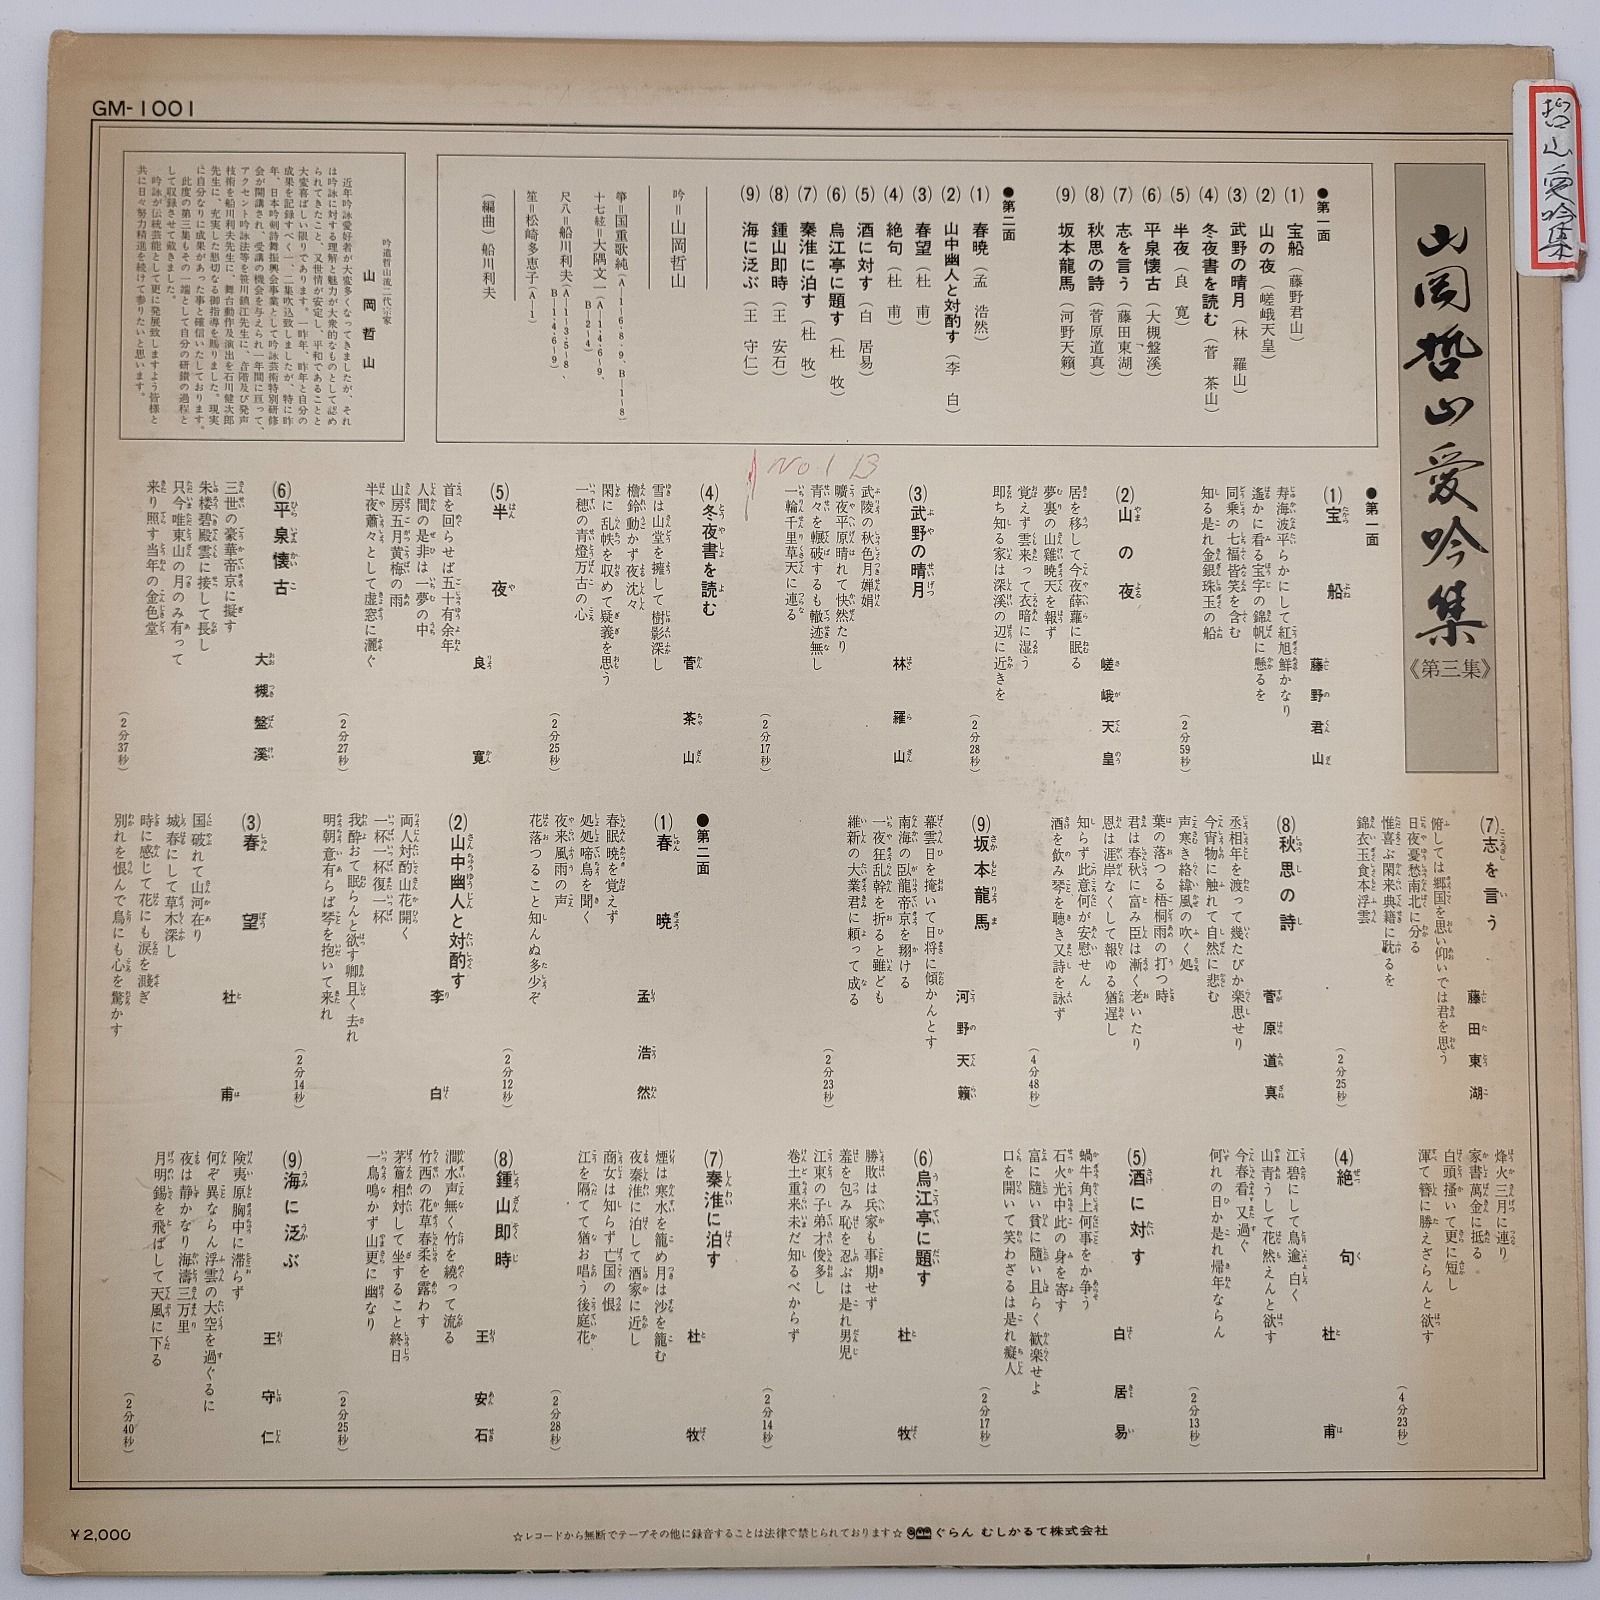 GM-1001
哲山愛吟集
山岡哲山愛吟集
《第三集》
●第一面
(1) 宝船（藤野君山）
(2) 山の夜（嵯峨天皇）
(3) 武野の晴月（林 羅山）
(4) 冬夜書を読む（菅 茶山）
(5) 半夜（良 寛）
(6) 平泉懐古（大槻盤溪）
(7) 志を言う（藤田東湖）
(8) 秋思の詩（菅原道真）
(9) 坂本龍馬（河野天籟）
●第二面
(1) 春暁（孟 浩然）
(2) 山中幽人と対酌す（李 白）
(3) 春望（杜 甫）
(4) 絶句（杜 甫）
(5) 酒に対す（白 居易）
(6) 烏江亭に題す（杜 牧）
(7) 秦淮に泊す（杜 牧）
(8) 鍾山即時（王 安石）
(9) 海に泛ぶ（王 守仁）
吟＝山岡哲山
箏＝国重歌純（A—1・6・8・9、B—1〜8）
十七絃＝大隅文一（A—1・4・6〜9、
B—2・4）
尺八＝船川利夫（A—1〜3・5〜8、
B—1・4・6〜9）
笙＝松崎多恵子（A—1）
（編曲）船川利夫
吟道哲山流二代宗家
山岡哲山
近年吟詠愛好者が大変多くなってきましたが、それ
は吟詠に対する理解と魅力が大衆的なものとして認め
られてきたこと、又世情が安定し、平和であることと
大変喜ばしい限りであります。一昨年、昨年と自分の
成果を記録すべく、一、二集吹込致しましたが、特に昨
年、日本吟剣詩舞振興会事業として吟詠芸術特別研修
会が開講され、受講の機会を与えられ一年間に亘って、
アクセント吟詠法等を笹川鎮江先生に、音階及び発声
技術を船川利夫先生に、舞台動作及演出を石川健次郎
先生に、充実した懇切なる御指導を賜りました。現実
に自分なりに成果があった事と確信いたしております。
此度の第三集もその一端として自分の研鑽の過程と
して収録させて戴きました。
吟詠が伝統芸能として更に発展致しますよう皆様と
共に日々努力精進を続けて参りたいと思います。
No 1 B
●第一面
(1) 宝船
藤野君山
寿海波平らかにして紅旭鮮かなり
遙かに看る宝字の錦帆に懸るを
同乗の七福皆笑を含む
知る是れ金銀珠玉の船
（2分59秒）
(2) 山の夜
嵯峨天皇
居を移して今夜薜蘿に眠る
夢裏の山雞暁天を報ず
覚えず雲来って衣暗に湿う
即ち知る家は深溪の辺に近きを
（2分28秒）
(3) 武野の晴月
林羅山
武陵の秋色月嬋娟
曠夜平原晴れて快然たり
青々を輾破するも轍迹無し
一輪千里草天に連る
（2分17秒）
(4) 冬夜書を読む
菅茶山
雪は山堂を擁して樹影深し
檐鈴動かず夜沈々
閑に乱帙を収めて疑義を思う
一穂の青燈万古の心
（2分25秒）
(5) 半夜
良寛
首を回らせば五十有余年
人間の是非は一夢の中
山房五月黄梅の雨
半夜蕭々として虚窓に灑ぐ
（2分27秒）
(6) 平泉懐古
大槻盤溪
三世の豪華帝京に擬す
朱楼碧殿雲に接して長し
只今唯東山の月のみ有って
来り照す当年の金色堂
（2分37秒）
(7) 志を言う
藤田東湖
俯しては郷国を思い仰いでは君を思う
日夜憂愁南北に分る
惟喜ぶ閑来典籍に耽るを
錦衣玉食本浮雲
（2分25秒）
(8) 秋思の詩
菅原道真
丞相年を渡って幾たびか楽思せり
今宵物に触れて自然に悲む
声寒き絡緯風の吹く処
葉の落つる梧桐雨の打つ時
君は春秋に富み臣は漸く老いたり
恩は涯岸なくして報ゆる猶遅し
知らず此意何が安慰せん
酒を飲み琴を聴き又詩を詠ず
（4分48秒）
(9) 坂本龍馬
河野天籟
幕雲日を掩いて日将に傾かんとす
南海の臥龍帝京を翔ける
一夜狂乱幹を折ると雖ども
維新の大業君に頼って成る
（2分23秒）
●第二面
(1) 春暁
孟浩然
春眠暁を覚えず
処処啼鳥を聞く
夜来風雨の声
花落つること知んぬ多少ぞ
（2分12秒）
(2) 山中幽人と対酌す
李白
両人対酌山花開く
一杯一杯復一杯
我酔おて眠らんと欲す卿且く去れ
明朝意有らば琴を抱いて来れ
（2分14秒）
(3) 春望
杜甫
国破れて山河在り
城春にして草木深し
時に感じて花にも涙を濺ぎ
別れを恨んで鳥にも心を驚かす
烽火三月に連り
家書萬金に抵る
白頭掻いて更に短し
渾て簪に勝えざらんと欲す
（4分23秒）
(4) 絶句
杜甫
江碧にして鳥逾白く
山青うして花然えんと欲す
今春看又過ぐ
何れの日か是れ帰年ならん
（2分13秒）
(5) 酒に対す
白居易
蝸牛角上何事をか争う
石火光中此の身を寄す
富に随い貧に随い且らく歓楽せよ
口を開いて笑わざるは是れ癡人
（2分17秒）
(6) 烏江亭に題す
杜牧
勝敗は兵家も事期せず
羞を包み恥を忍ぶは是れ男児
江東の子弟才俊多し
巻土重来未だ知るべからず
（2分14秒）
(7) 秦淮に泊す
杜牧
煙は寒水を籠め月は沙を籠む
夜秦淮に泊して酒家に近し
商女は知らず亡国の恨
江を隔てて猶お唱う後庭花
（2分28秒）
(8) 鍾山即時
王安石
澗水声無く竹を繞って流る
竹西の花草春柔を露わす
茅簷相対して坐すること終日
一鳥鳴かず山更に幽なり
（2分25秒）
(9) 海に泛ぶ
王守仁
険夷原胸中に滞らず
何ぞ異ならん浮雲の大空を過ぐるに
夜は静かなり海濤三万里
月明錫を飛ばして天風に下る
（2分40秒）
¥2,000
☆レコードから無断でテープその他に録音することは法律で禁じられております☆ ぐらん むしかるて株式会社